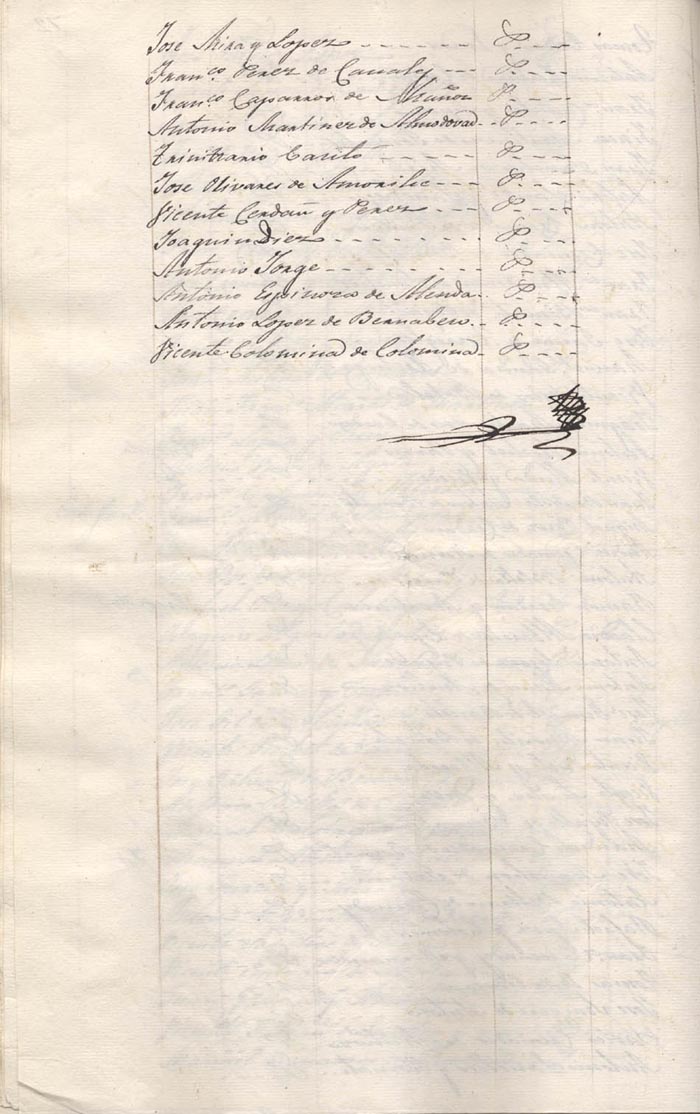 Jose Mira y Lopez - - - - - - P. - - -
Fran.co Perez de Canaly - - - P. - - -
Fran.co Caparros de Muñoz P. - - -
Antonio Martinez de Almodovad - P. - - -
Trinitario Carito - - - - - P. - - -
Jose Olivares de Amorile - - - P. - - -
Vicente Cerdañ y Perez - - - P. - - -
Joaquin Diez - - - - - - - P. - - -
Antonio Jorge - - - - - - - P. - - -
Antonio Espinoza de Menda - P. - - -
Antonio Lopez de Bernabeu - - P. - - -
Vicente Colomina de Colomina - P. - - -